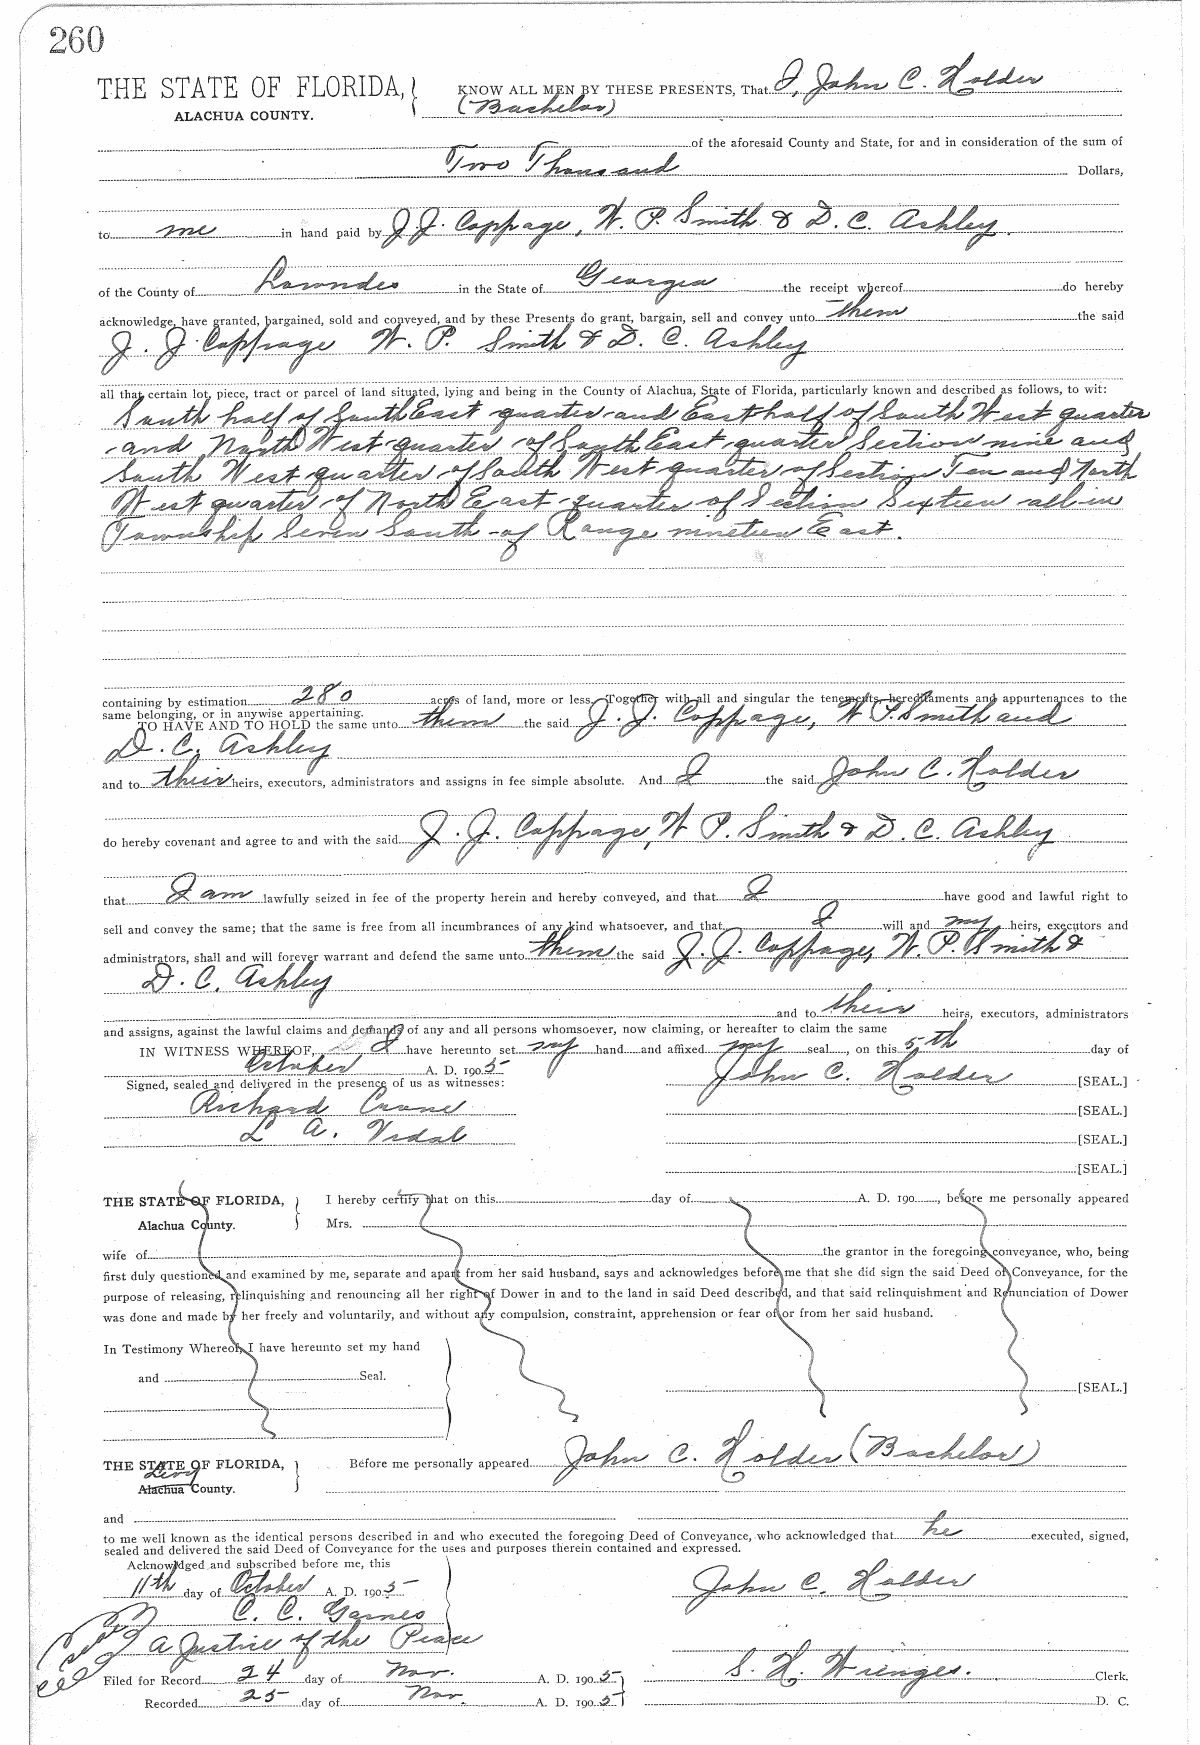 260
THE STATE OF FLORIDA,
KNOW ALL MEN BY THESE PRESENTS, That I, John C. Holder
ALACHUA COUNTY.
(Bachelor)
of the aforesaid County and State, for and in consideration of the sum of
Two Thousand Dollars,
to me in hand paid by J. J. Coppage, W. P. Smith & D. C. Ashley.
of the County of Lowndes in the State of Georgia the receipt whereof do hereby
acknowledge, have granted, bargained, sold and conveyed, and by these Presents do grant, bargain, sell and convey unto them the said
J. J. Coppage W. P. Smith & D. C. Ashley
all that certain lot, piece, tract or parcel of land situated, lying and being in the County of Alachua, State of Florida, particularly known and described as follows, to wit:
South half of South East quarter and East half of South West quarter
and North West quarter of South East quarter Section nine and
South West quarter of South West quarter of Section Ten and North
West quarter of North East quarter of Section Sixteen all in
Township Seven South of Range nineteen East.
containing by estimation 280 acres of land, more or less. Together with all and singular the tenements, hereditaments and appurtenances to the
same belonging, or in anywise appertaining.
TO HAVE AND TO HOLD the same unto them the said J. J. Coppage, W P. Smith and
D. C. Ashley
and to their heirs, executors, administrators and assigns in fee simple absolute. And I the said John C. Holder
do hereby covenant and agree to and with the said J. J. Coppage, W P. Smith & D. C. Ashley
that I am lawfully seized in fee of the property herein and hereby conveyed, and that I have good and lawful right to
sell and convey the same; that the same is free from all incumbrances of any kind whatsoever, and that I will and my heirs, executors and
administrators, shall and will forever warrant and defend the same unto them the said J. J. Coppage, W. P. Smith &
D. C. Ashley
and to their heirs, executors, administrators
and assigns, against the lawful claims and demands of any and all persons whomsoever, now claiming, or hereafter to claim the same
IN WITNESS WHEREOF, I have hereunto set my hand and affixed my seal, on this 5th day of
October A. D. 1905
Signed, sealed and delivered in the presence of us as witnesses: John C. Holder [SEAL.]
Richard Crane [SEAL.]
L A. Vidal [SEAL.]
[SEAL.]
THE STATE OF FLORIDA, I hereby certify that on this day of A. D. 190 , before me personally appeared
Alachua County. Mrs.
wife of the grantor in the foregoing conveyance, who, being
first duly questioned and examined by me, separate and apart from her said husband, says and acknowledges before me that she did sign the said Deed of Conveyance, for the
purpose of releasing, relinquishing and renouncing all her right of Dower in and to the land in said Deed described, and that said relinquishment and Renunciation of Dower
was done and made by her freely and voluntarily, and without any compulsion, constraint, apprehension or fear of or from her said husband.
In Testimony Whereof, I have hereunto set my hand
and Seal.
[SEAL.]
THE STATE OF FLORIDA, Before me personally appeared John C. Holder (Bachelor)
Levy
Alachua County.
and
to me well known as the identical persons described in and who executed the foregoing Deed of Conveyance, who acknowledged that he executed, signed,
sealed and delivered the said Deed of Conveyance for the uses and purposes therein contained and expressed.
Acknowledged and subscribed before me, this
11th day of October A. D. 1905 John C. Holder
C. C.
A Justice of the Peace
Filed for Record 24 day of Nov. A. D. 1905 S. H. Wienges. Clerk.
Recorded 25 day of Nov. A. D. 1905 D. C.